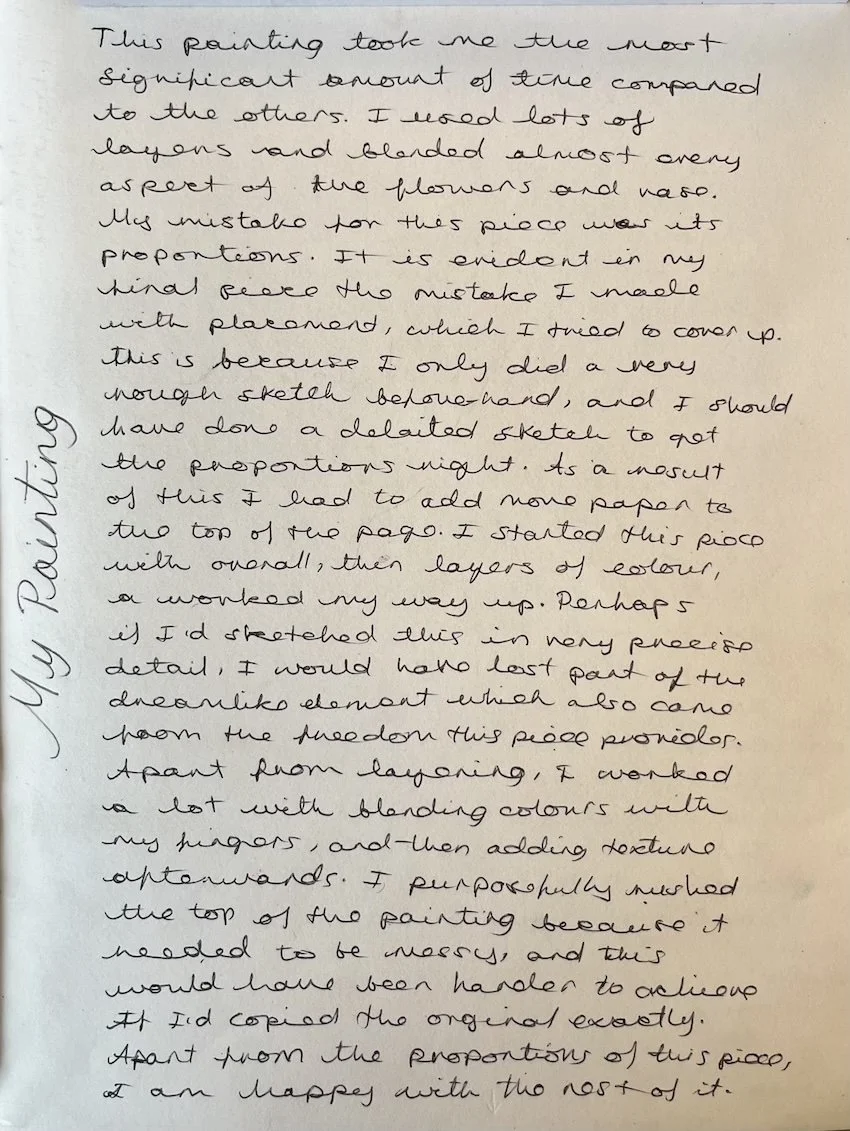 My Painting
This painting took me the most
significant amount of time compared
to the others. I used lots of
layers and blended almost every
aspect of the flowers and vase.
My mistake for this piece was its
proportions. It is evident in my
final piece the mistake I made
with placement, which I tried to cover up.
This is because I only did a very
rough sketch before-hand, and I should
have done a detailed sketch to get
the proportions right. As a result
of this I had to add more paper to
the top of the page. I started this piece
with overall, then layers of colour,
a worked my way up. Perhaps
if I'd sketched this in very precise
detail, I would have lost part of the
dreamlike element which also came
from the freedom this piece provides.
Apart from layering, I worked
a lot with blending colours with
my fingers, and then adding texture
afterwards. I purposefully rushed
the top of the painting because it
needed to be messy, and this
would have been harder to achieve
If I'd copied the orginal exactly.
Apart from the proportions of this piece,
I am happy with the rest of it.